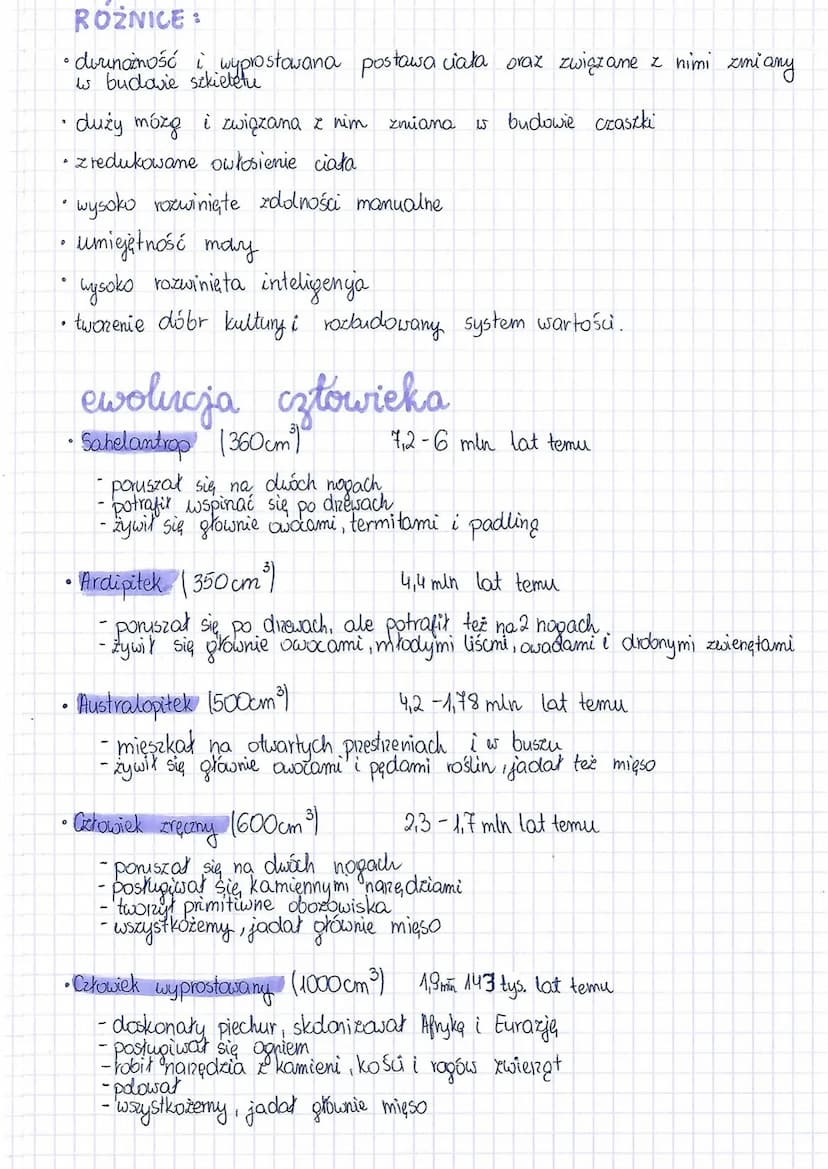 RÓŻNICE:
• dwunożność i wyprostowana postawa ciała oraz związane z nimi zmiany
w budowie szkieletu
• duży mózg i związana z nim zmiana w budowie czaszki
• zredukowane owłosienie ciała
• wysoko rozwinięte zdolności manualne
• umiejętność mowy
• wysoko rozwinięta inteligencja
• tworzenie dóbr kultury i rozbudowany system wartości.
ewolucja człowieka
• Sahelantrop (360cm³) 7,2-6 mln lat temu
- poruszał się na dwóch nogach
- potrafił wspinać się po drzewach
- żywił się głownie owocami, termitami i padliną
• Ardipitek (350cm³) 4,4 mln lat temu
- poruszał się po drzewach, ale potrafił też na 2 nogach
- żywił się głównie owocami, młodymi liścmi, owadami i drobnymi zwierzętami
• Australopitek (500cm³) 4,2-1,78 mln lat temu
- mieszkał na otwartych przestrzeniach i w buszu
- żywił się głównie owocami i pędami roślin, jadał też mięso
• Człowiek zręczny (600cm³) 2,3-1,7 mln lat temu
- poruszał się na dwóch nogach
- posługiwał się kamiennymi narzędziami
- tworzył primitiwne obozowiska
- wszystkożerny, jadał głównie mięso
• Człowiek wyprostowany (1000cm³) 1,9mln 143 tys. lat temu
- doskonały piechur, skolonizował Afrykę i Eurazję
- posługiwał się ogniem
- robił narzędzia z kamieni, kości i rogów zwierząt
- polował
- wszystkożerny, jadał głównie mięso